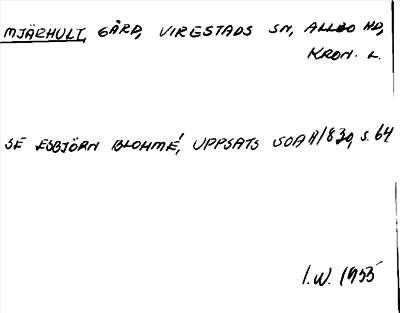 MJÄRHULT, GÅRD, VIRESTADS SN, ALLBO HD,
KRON. L.
SE ESBJÖRN BLOHMÉ, UPPSATS SOAA 1830, s. 64
I.W. 1955